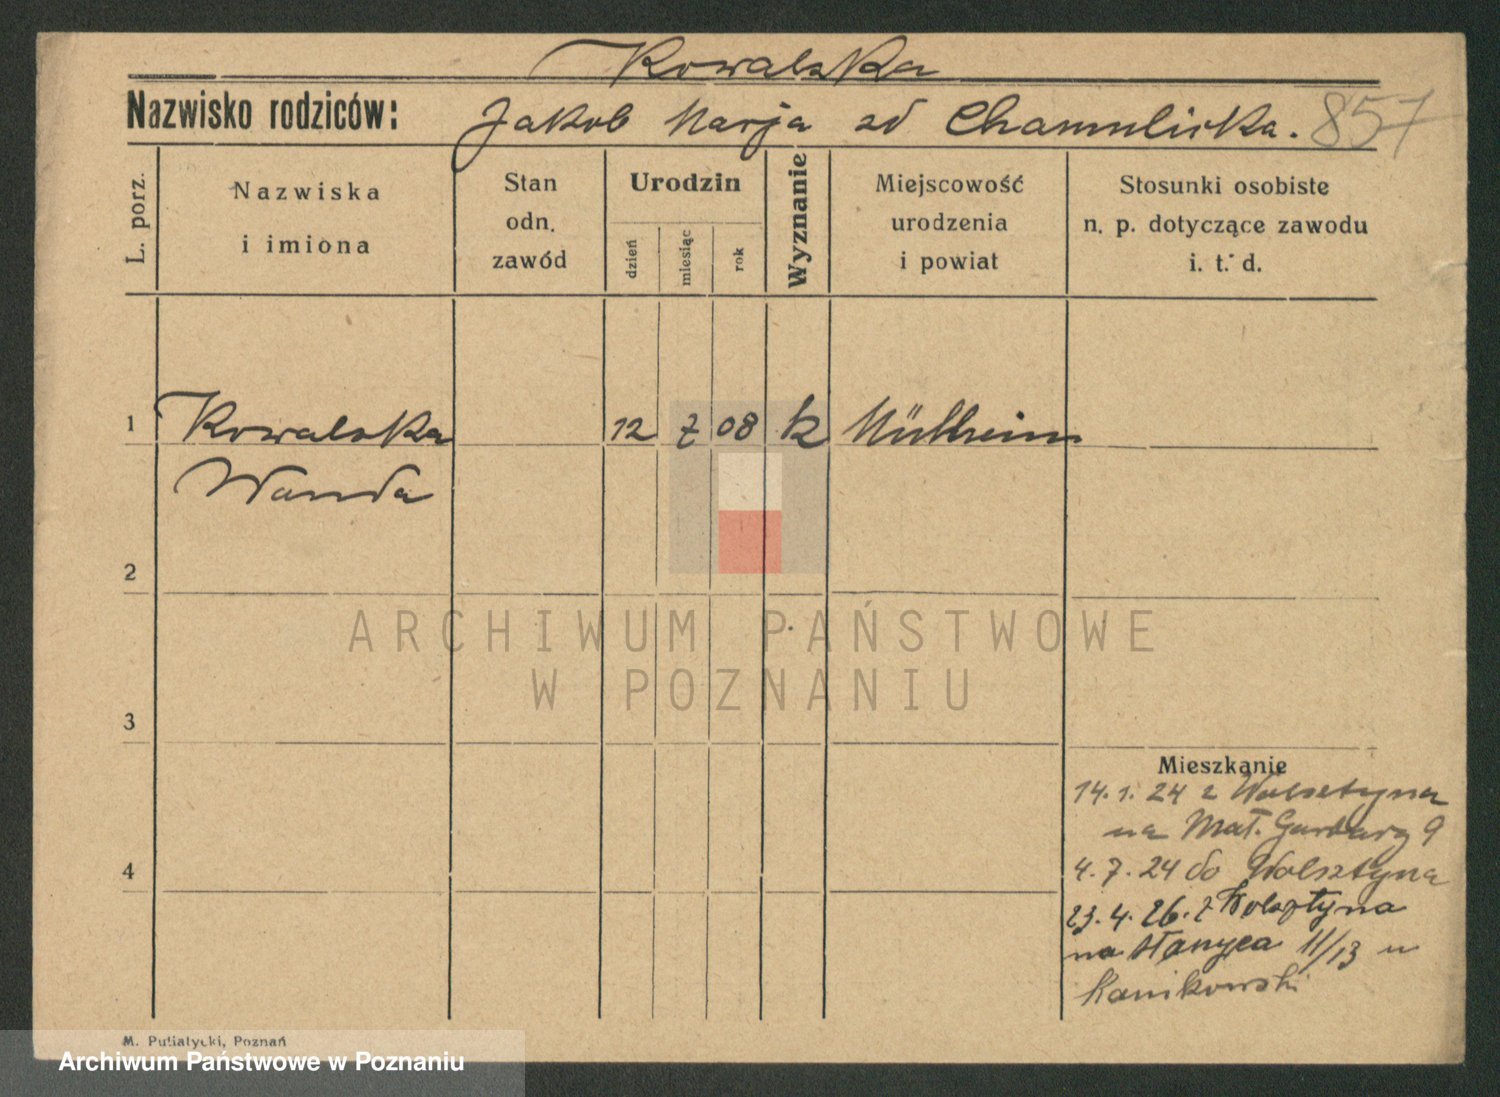 Kowalska
Nazwisko rodziców: Jakob Marja zd 857
L. porz.
Nazwiska i imiona
Stan odn. zawód
Urodzin
dzień miesiąc rok
Wyznanie
Miejscowość urodzenia i powiat
Stosunki osobiste n. p. dotyczące zawodu i. t. d.
1 Kowalska 12 7 08 k Mülheim
Wanda
2
ARCHIWUM PAŃSTWOWE
W POZNANIU
3
Mieszkanie
14. 1. 24 z Wolsztyna
na Mał. Garbary 9
4
4. 7. 24 do Wolsztyna
23. 4. 26. z Wolsztyna
na 11/13 u
Kanikowski
M. Putiatycki, Poznań
Archiwum Państwowe w Poznaniu